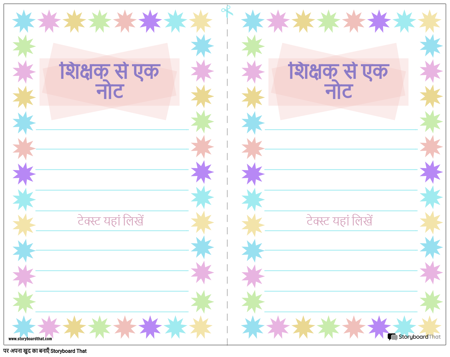 शिक्षक से एक
नोट
टेक्स्ट यहां लिखें
शिक्षक से एक
नोट
टेक्स्ट यहां लिखें
www.storyboardthat.com
StoryboardThat
पर अपना खुद का बनाएँ Storyboard That